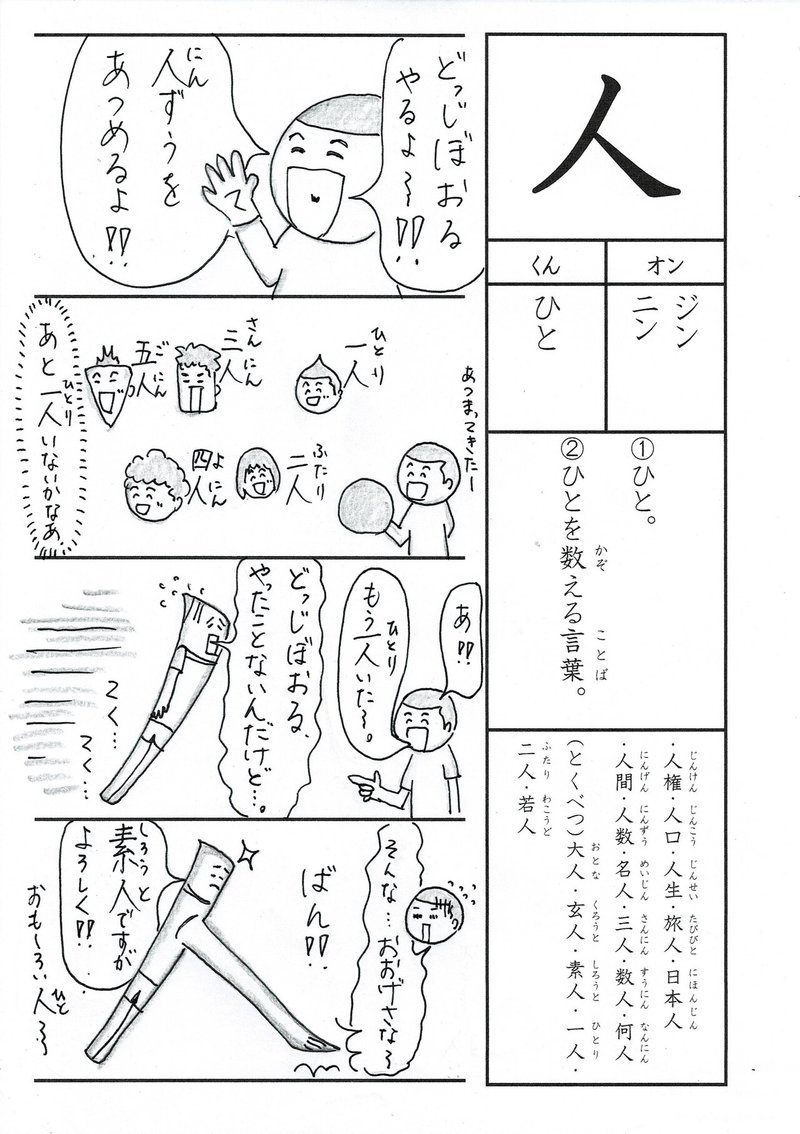 人
オン
ジン
ニン
くん
ひと
①ひと。
かぞ ことば
②ひとを数える言葉。
じんけん じんこう じんせい たびびと にほんじん
・人権・人口・人生・旅人・日本人
にんげん にんずう めいじん さんにん すうにん なんにん
・人間・人数・名人・三人・数人・何人
おとな くろうと しろうと ひとり
(とくべつ)大人・玄人・素人・一人・
ふたり わこうど
二人・若人
どっじぼおる
やるよ〜!!
にん
人ずうを
あつめるよ!!
あつまってきたー
ひとり
一人
ふたり
二人
さんにん
三人
よにん
四人
ごにん
五人
ひとり
あと一人いないかなあ
あ!!
ひとり
もう一人いた〜。
どっじぼおる
やったことないんだけど…。
てく…
てく…
そんな…おおげさな〜
ばん!!
しろうと
素人ですが
よろしく!!
ひと
おもしろい人〜